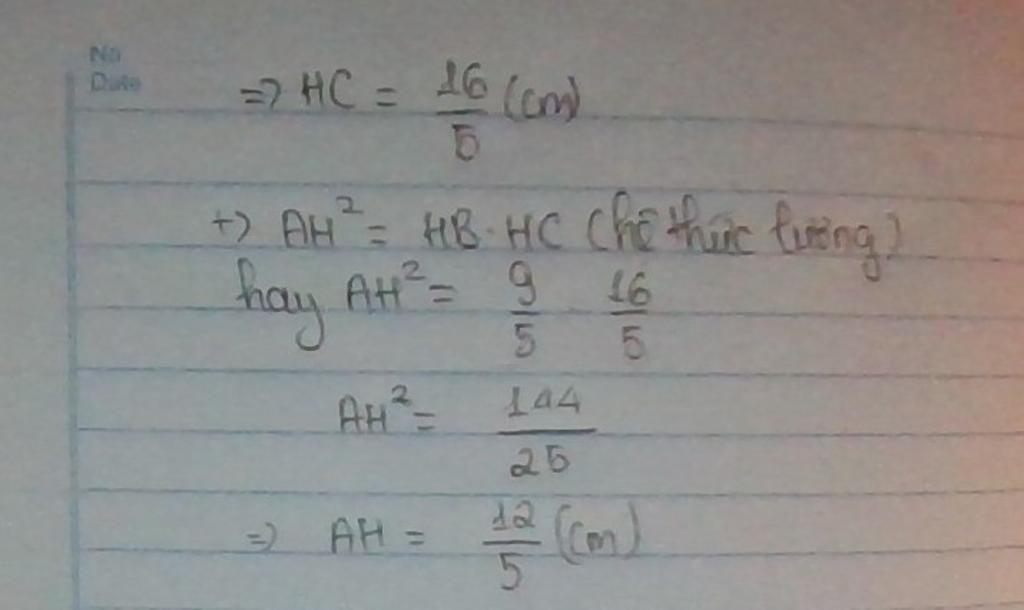 No
Date
=> HC = 16/5 (cm)
+) AH² = HB.HC (hệ thức lượng)
hay AH² = 9/5 16/5
AH² = 144/25
=> AH = 12/5 (cm)